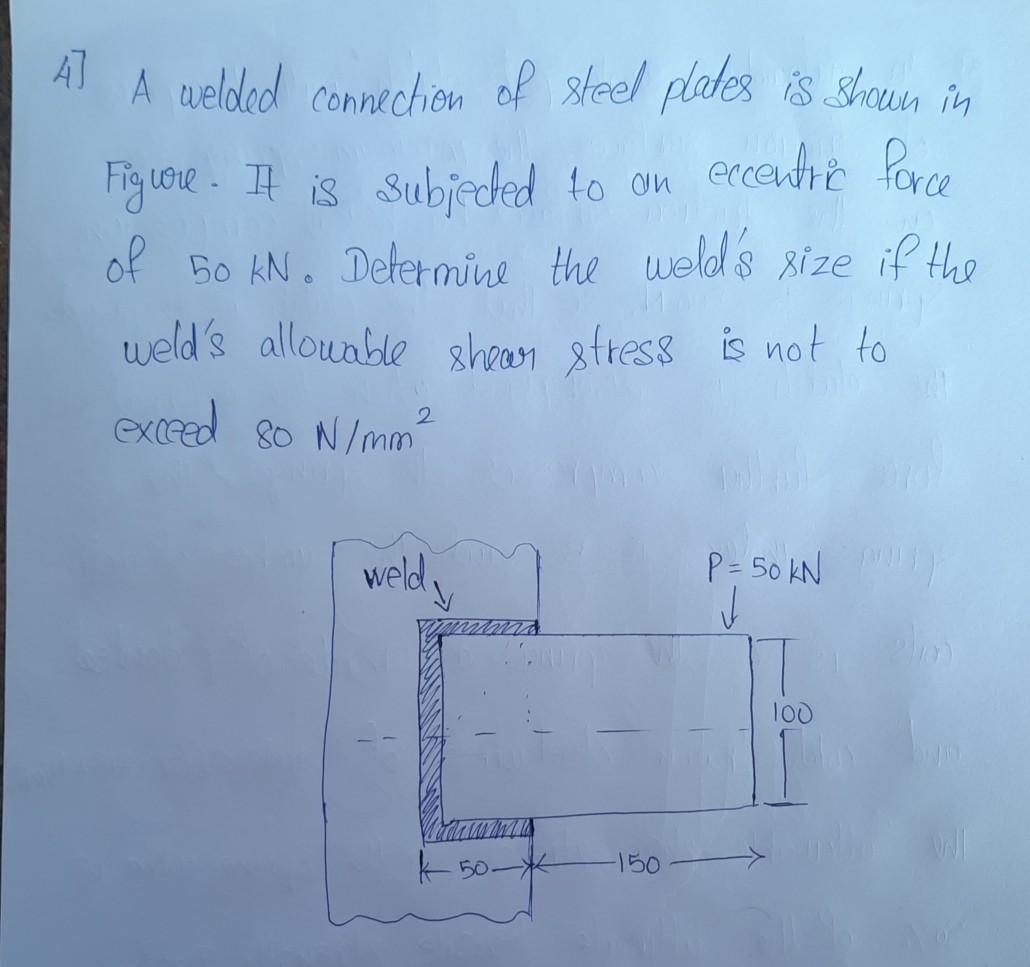 4] A welded connection of steel plates is shown in
Figure. It is subjected to an eccentric force
of 50 kN. Determine the weld's size if the
weld's allowable shear stress is not to
exceed 80 N/mm²
weld
P = 50 kN
100
50
150